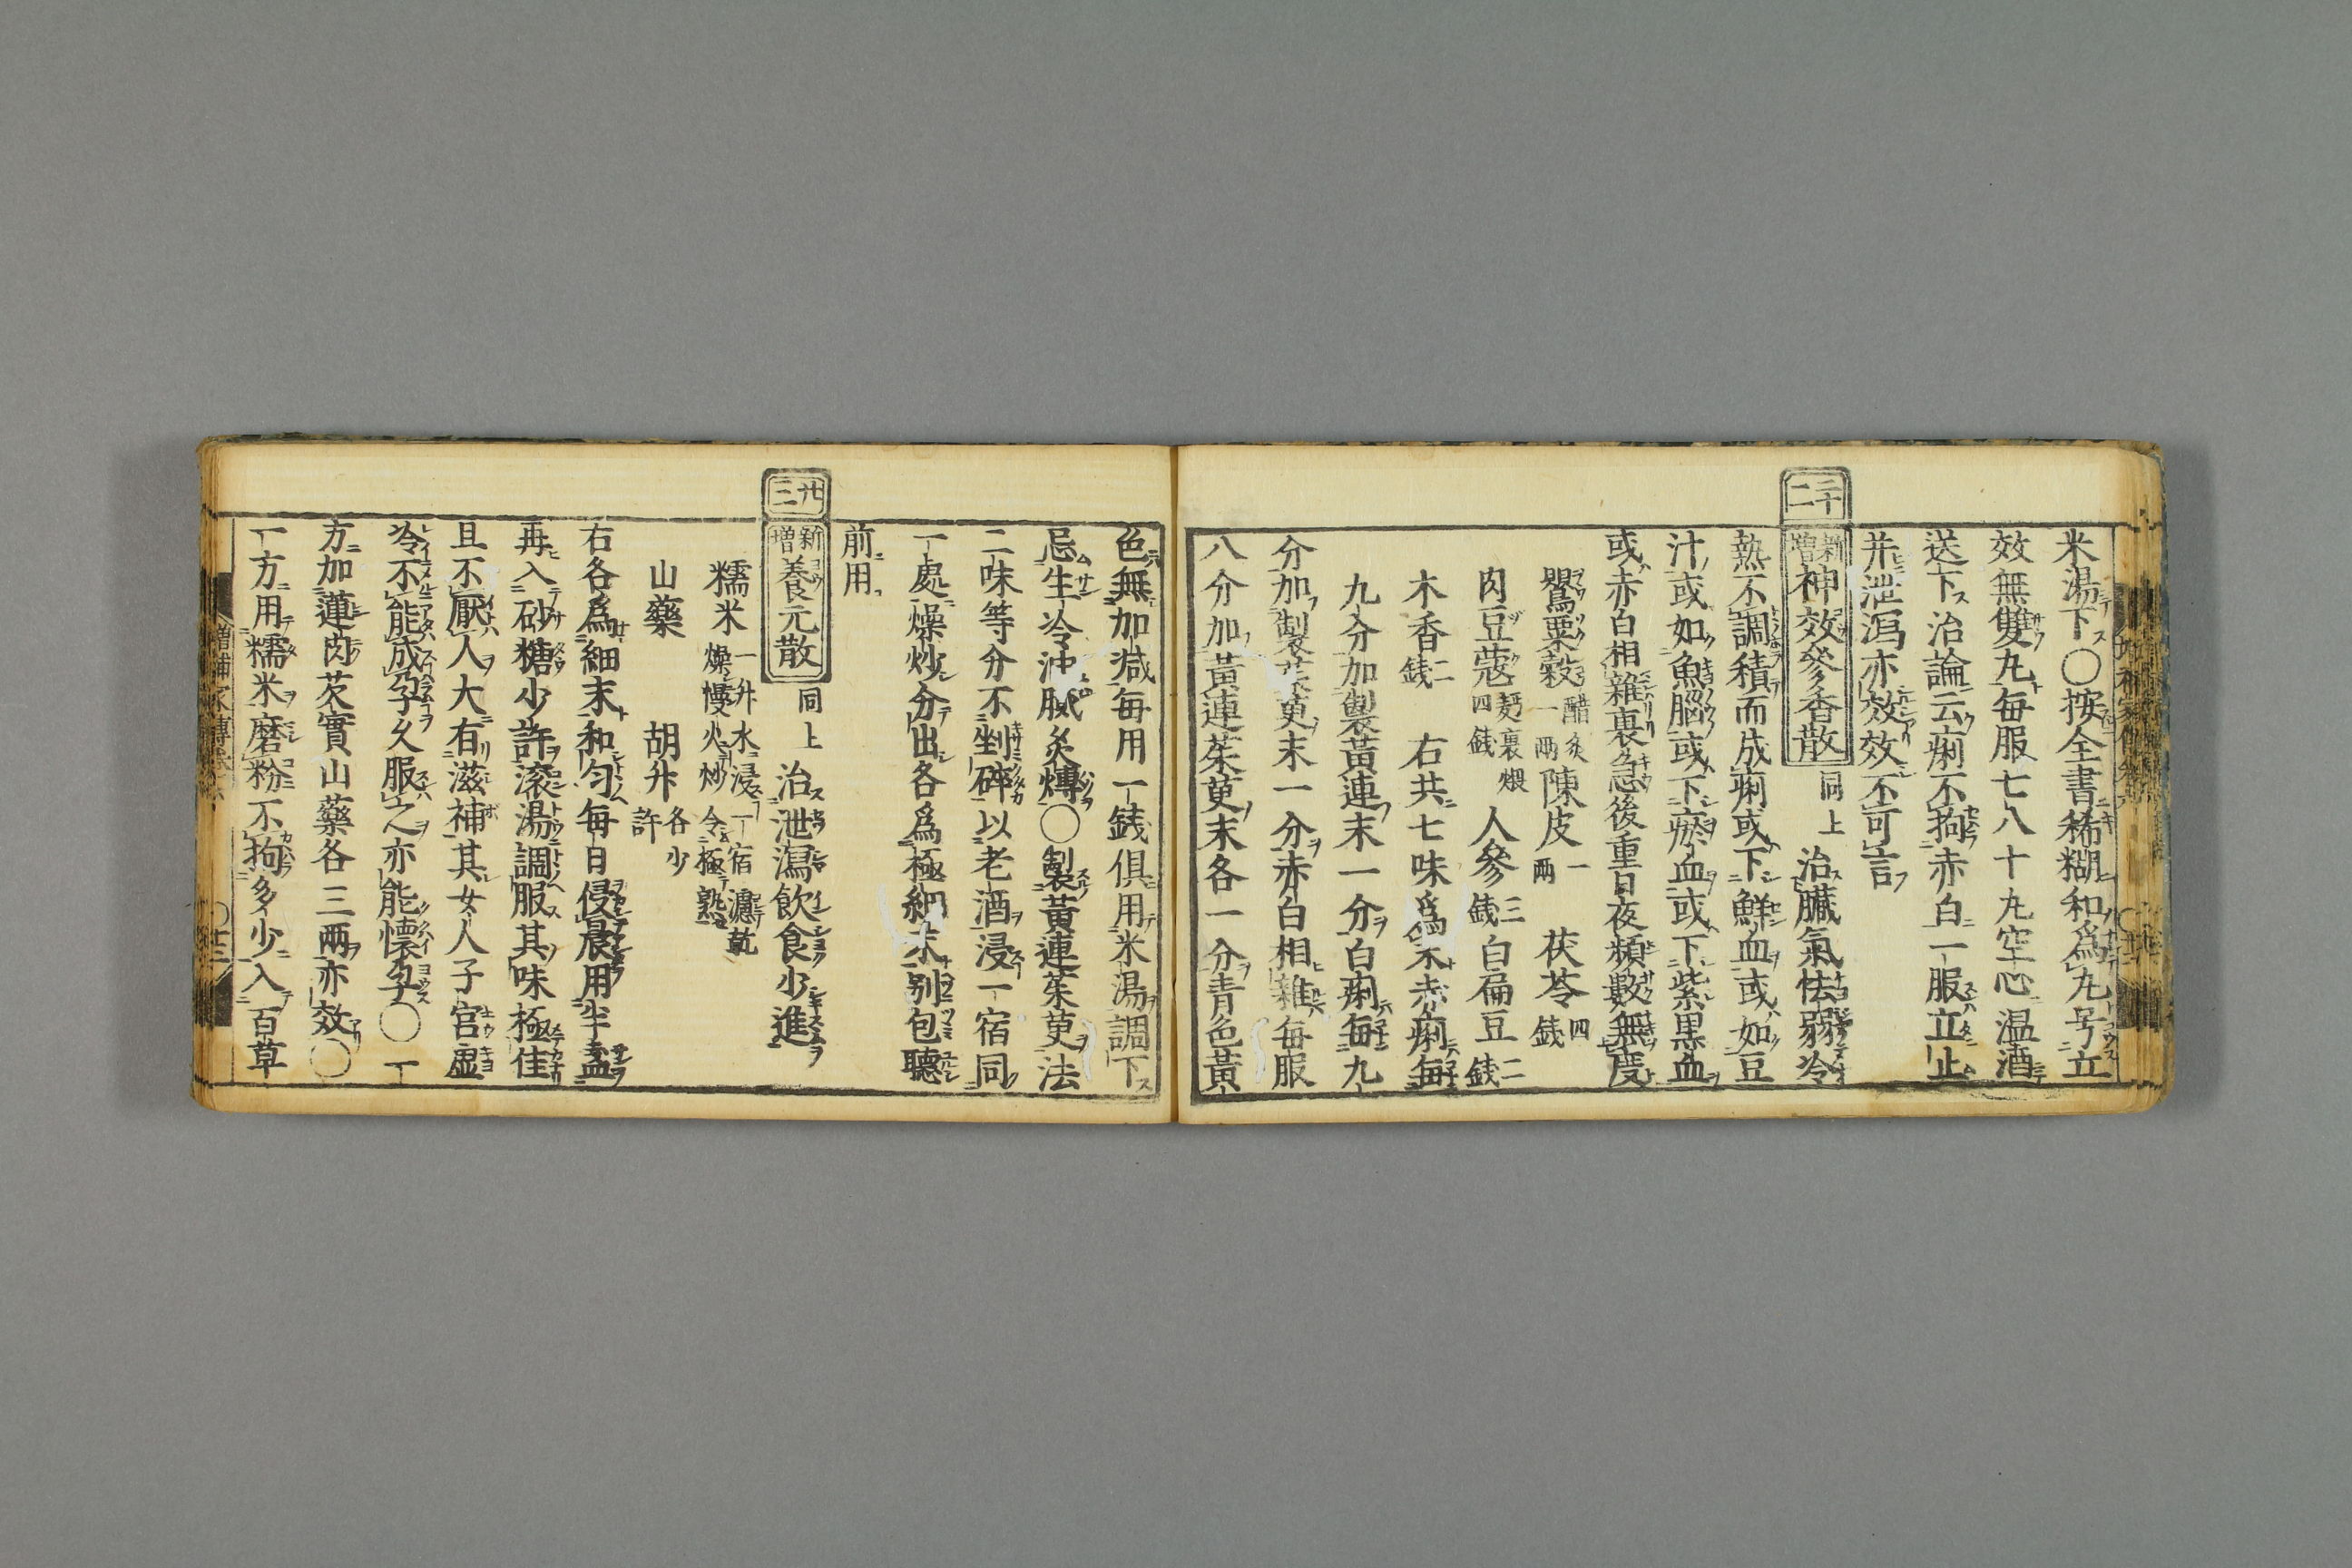 米湯下〇按全書稀糊和爲丸号立
效無雙丸毎服七八十丸空心温酒
送下治論云痢不拘赤白一服立止
幷泄瀉亦效效不可言
二十二
新增神效參香散 同上 治臟氣怯弱冷
熱不調積而成痢或下鮮血或如豆
汁或如魚腦或下瘀血或下紫黒血
或赤白相雜裏急後重日夜頻數無度
罌粟殼 醋炙一両 陳皮 一両 茯苓 四錢
肉豆蔲 麪裹煨四錢 人參 三錢 白扁豆 二錢
木香 二錢 右共七味爲末赤痢毎
九分加製黃連末一分白痢毎九
分加製茱萸末一分赤白相雜毎服
八分加黃連茱萸末各一分青色黃
色無加减毎用一錢俱用米湯調下
忌生冷油膩炙煿〇製黃連茱萸法
二味等分不剉碎以老酒浸一宿同
一處燥炒分出各爲極細末别包聽
前用
廿三
新增養元散 同上 治泄瀉飲食少進
糯米 一升水浸一宿濾乾燥慢火炒令極熟
山藥 胡升 各少許
右各爲細末和匀毎日侵晨用半盞
再入砂糖少許滾湯調服其味極佳
且不厭人大有滋補其女人子宮虛
冷不能成孕久服之亦能懷孕〇一
方加蓮肉芡實山藥各三兩亦效〇
一方用糯米磨粉不拘多少入百草
增補家傳